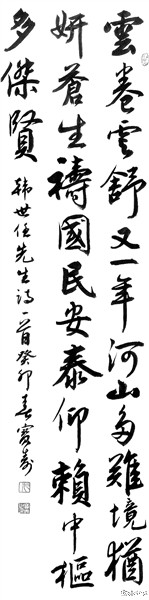 雲卷雲舒又一年河山多難境猶
妍蒼生禱國民安泰仰賴中樞
多傑賢
韩世任先生詩一首癸卯春寶壽